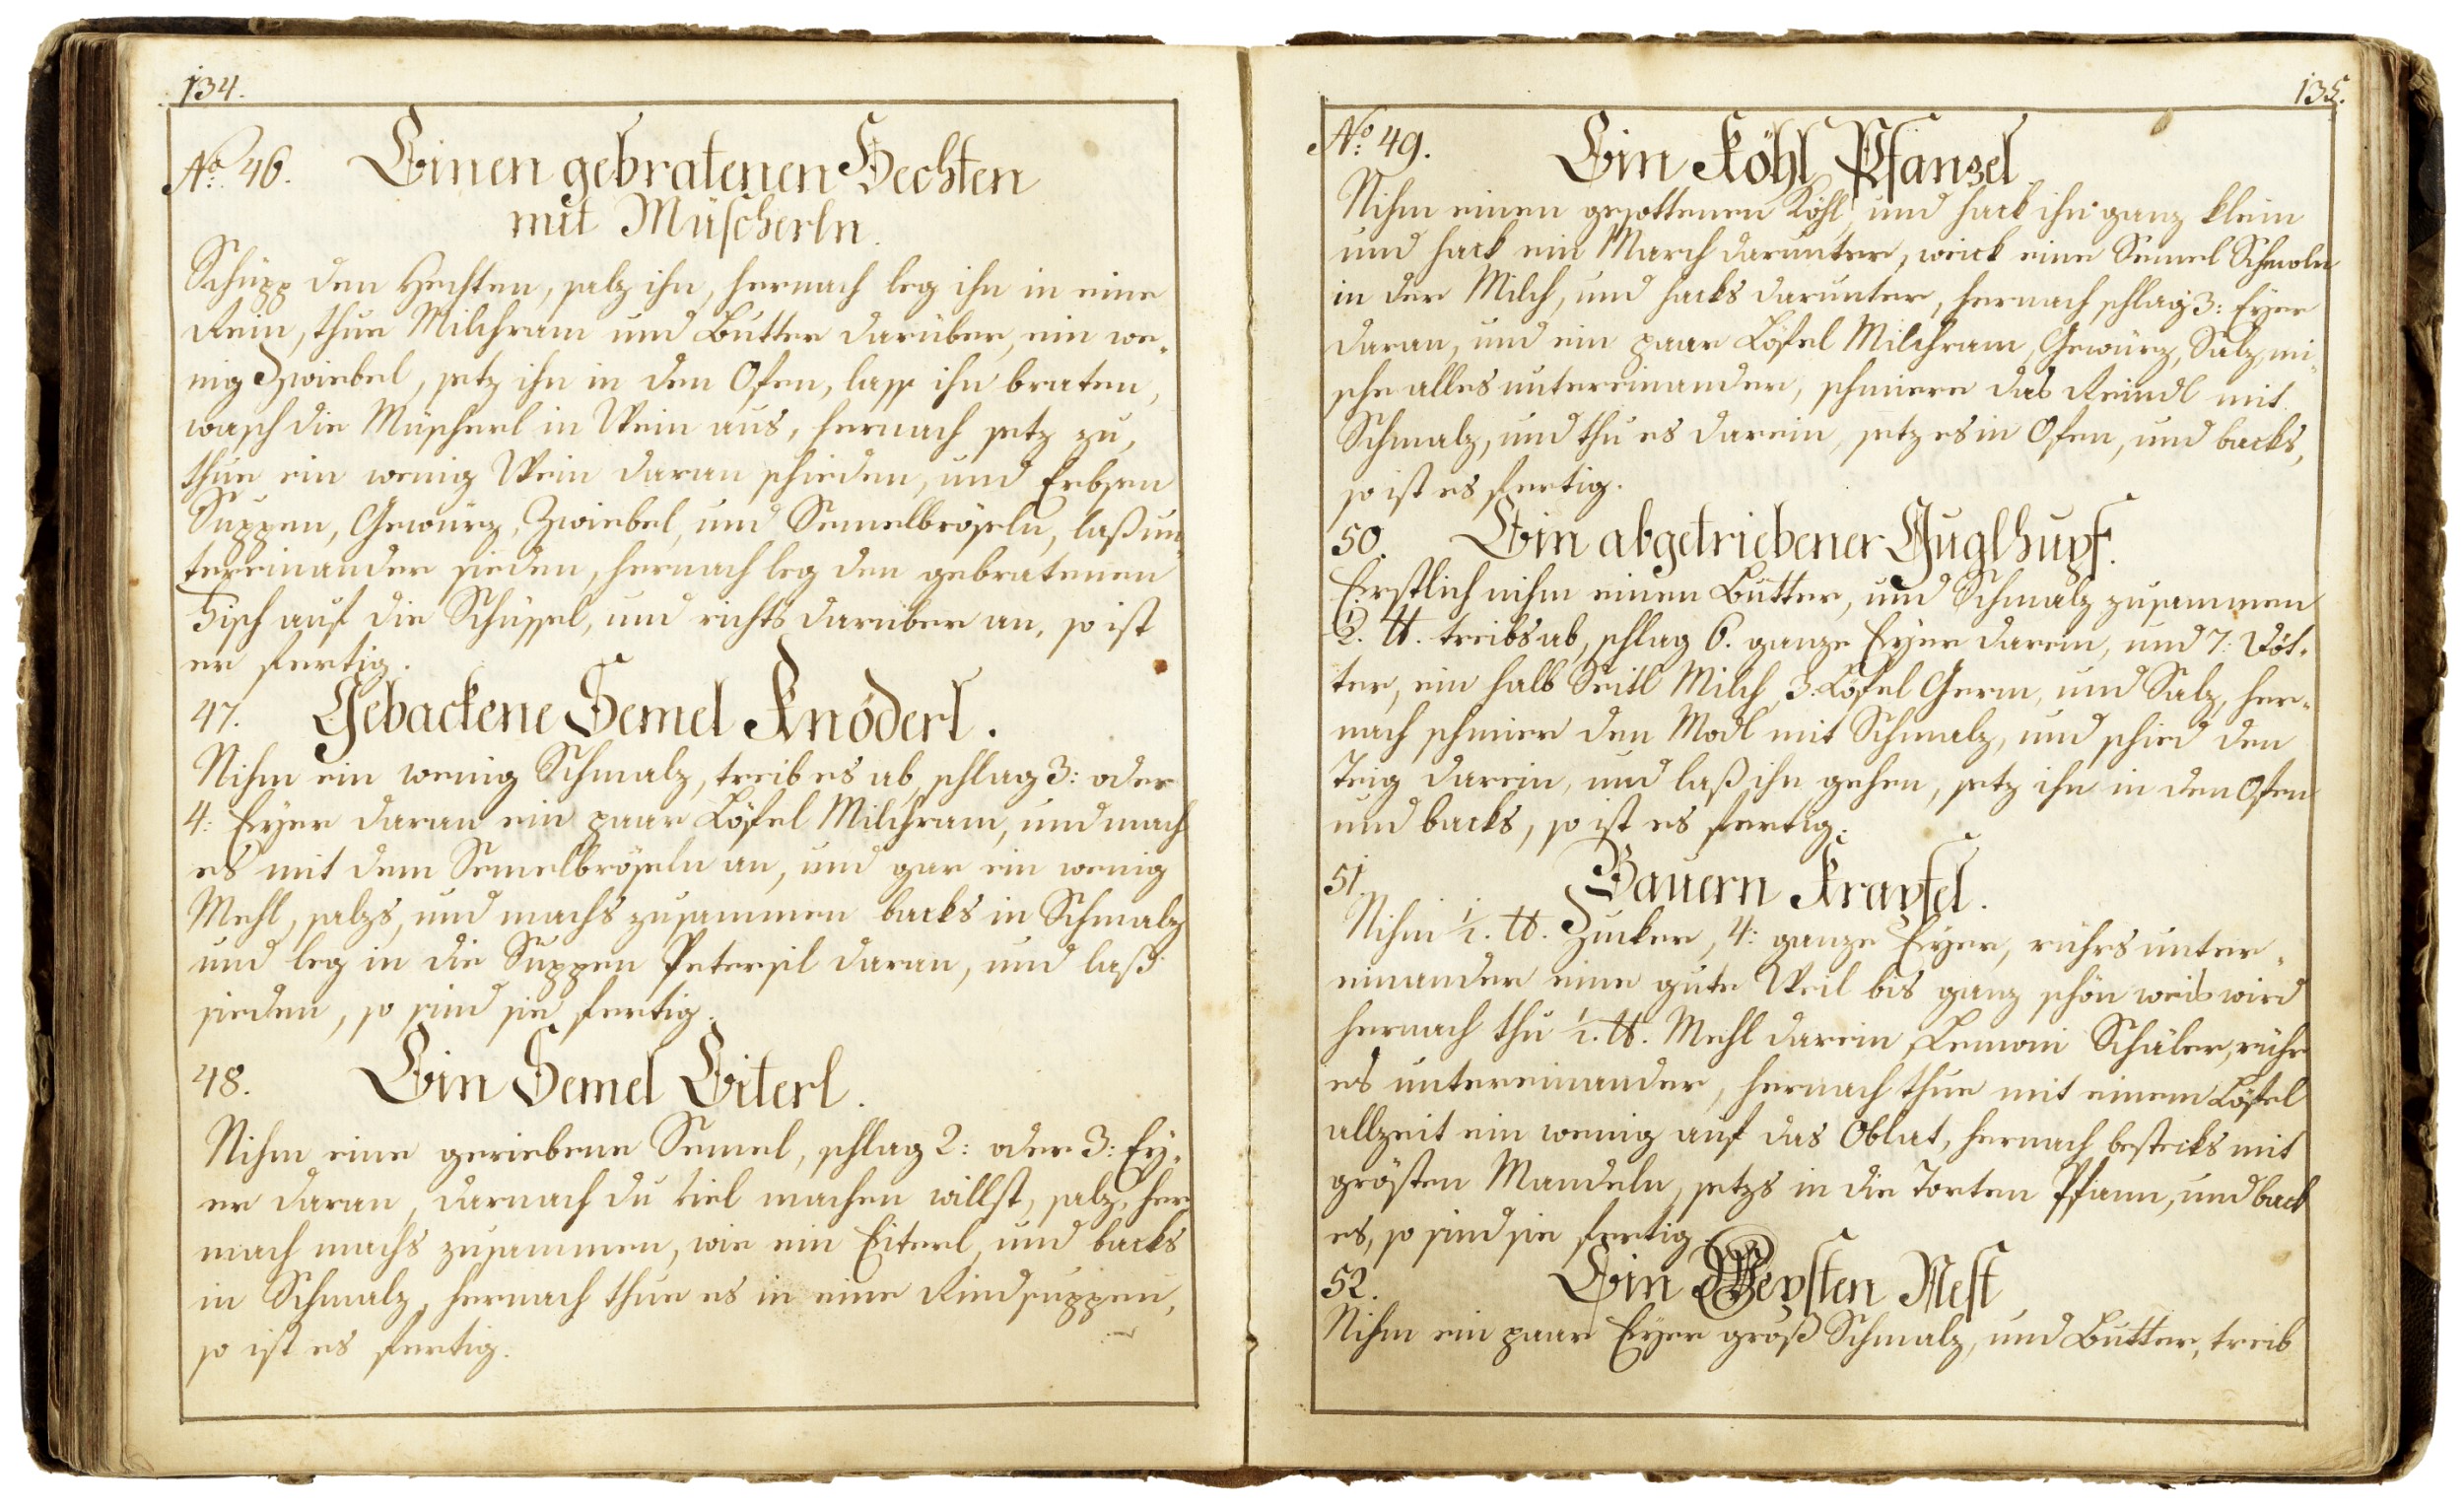 134.
No. 46. Einen gebratenen Hechten
mit Müscherln.
Schüpp den Hechten, salz ihn, hernach leg ihn in eine
Rein, thue Milchram und Butter darüber, ein we-
nig Zwiebel, setz ihn in den Ofen, lass ihn braten,
wasch die Müscherl in Wein aus, hernach setz zu,
thue ein wenig Wein daran schieden, und Erbsen
Suppen, Gewürz, Zwiebel, und Semelbröseln, laß un-
tereinander sieden, hernach leg den gebratenen
Fisch auf die Schüssel, und richts darüber an, so ist
er fertig.
47. Gebackene Semel Knöderl.
Nihm ein wenig Schmalz, treib es ab, schlag 3: oder
4: Eyer daran ein paar Löfel Milchram, und mach
es mit dem Semelbröseln an, und gar ein wenig
Mehl, salzs, und machs zusammen backs in Schmalz
und leg in die Suppen Petersil daran, und laß
sieden, so sind sie fertig.
48. Ein Semel Eiterl.
Nihm eine geriebene Semel, schlag 2: oder 3: Ey-
er daran, darnach du viel machen willst, salz, her
nach machs zusammen, wie ein Eiterl, und backs
in Schmalz, hernach thue es in eine Rindsuppen,
so ist es fertig.
135.
No. 49. Ein Köhl Pfanzel
Nihm einen gesottenen Köhl, und hack ihn ganz klein
und hack ein March darunter, weick eine Semel Schmoln
in der Milch, und hacks darunter, hernach schlag 3: Eyer
daran, und ein paar Löfel Milchram, Gewürz, Salz, mi-
sche alles untereinander, schmiere das Reindl mit
Schmalz, und thu es darein, setz es in Ofen, und backs,
so ist es fertig.
50. Ein abgetriebener Guglhupf.
Erstlich nihm einen Butter, und Schmalz zusammen
1/2. ℔. treibs ab, schlag 6. ganze Eyer darein, und 7: Döt-
ter, ein halb Seitl Milch, 3: Löfel Germ, und Salz, her-
nach schmier den Modl mit Schmalz, und schied den
Teig darein, und laß ihn gehen, setz ihn in den Ofen
und backs, so ist es fertig:
51. Bauern Krapfel.
Nihm 1/2. ℔. Zucker, 4: ganze Eyer, rührs unter-
einander eine gute Weil bis ganz schön weis wird
hernach thu 1/2. ℔. Mehl darein, Lemoni Schäler, rühr
es untereinander, hernach thue mit einem Löfel
allzeit ein wenig auf das Oblat, hernach bestecks mit
grösten Mandeln, setzs in die Torten Pfann, und back
es, so sind sie fertig
52. Ein Wepsten Nest
Nihm ein paar Eyer groß Schmalz, und Butter, treib